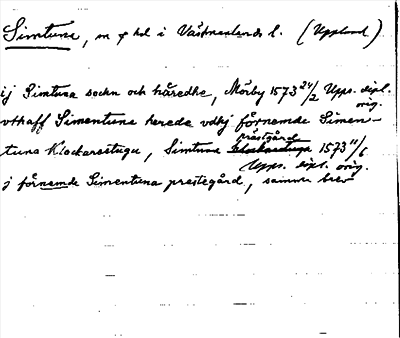 Simtuna, sn o hd i Västmanlands l. (Uppland)
ij Simtuna sockn och häredhe, Mörby 1573 24/2 Upps. dipl. orig.
vthaff Simentuna herede vdhj förnemde Simen-
tuna Klockarestugu, Simtuna prästgård 1573 11/6 Upps. dipl. orig.
j förnemde Simentuna prestegård, samma brev